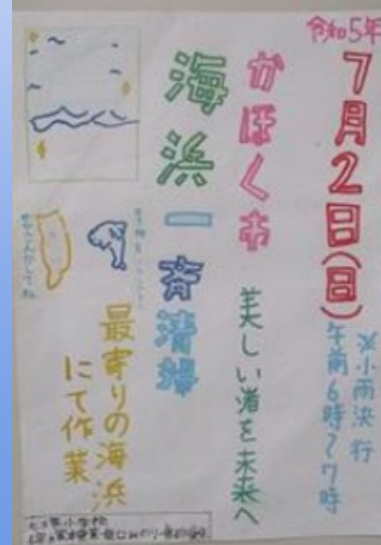 令和5年
7月2日(日)
※小雨決行
午前6時~7時
かほく市
美しい渚を未来へ
海浜一斉清掃
最寄りの海浜
にて作業